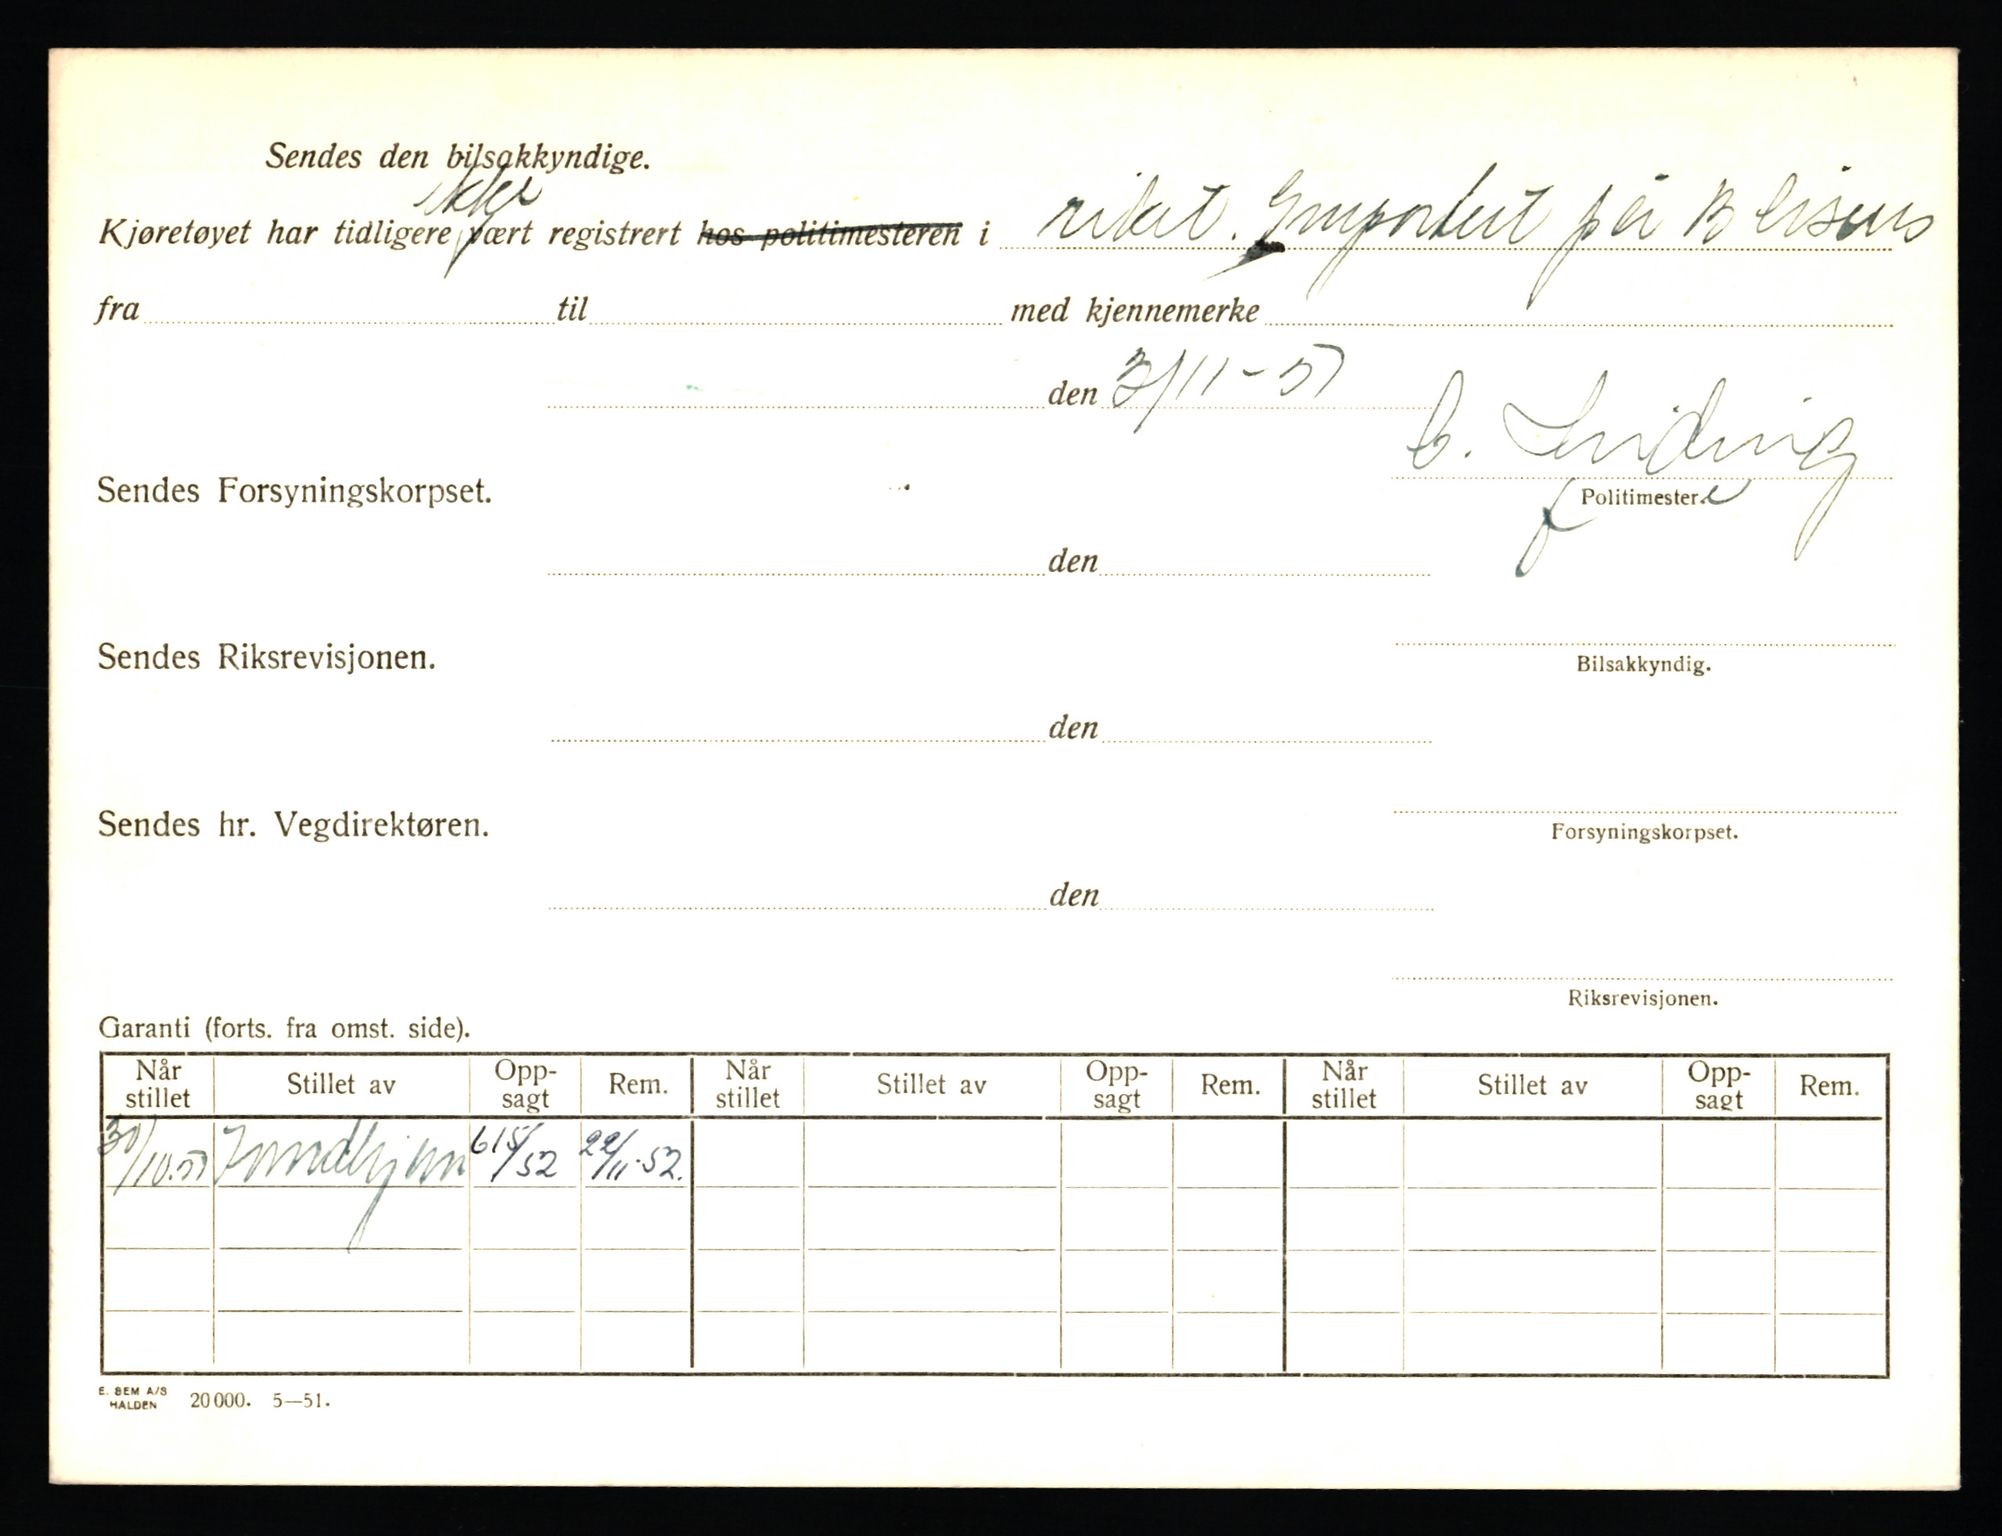 Sendes den bilsakkyndige.
ikke
Kjøretøyet har tidligere vært registrert hos politimesteren i riket. Importert på B lisens
fra til med kjennemerke
den 3/11-51
Sendes Forsyningskorpset.
Politimester.
den
Sendes Riksrevisjonen.
Bilsakkyndig.
den
Sendes hr. Vegdirektøren.
Forsyningskorpset.
den
Riksrevisjonen.
Garanti (forts. fra omst. side).
Når stillet Stillet av Opp-sagt Rem. Når stillet Stillet av Opp-sagt Rem. Når stillet Stillet av Opp-sagt Rem.
30/10.51 Trondhjem 6/5/52 22/11-52.
E. SEM A/S
HALDEN 20 000. 5—51.